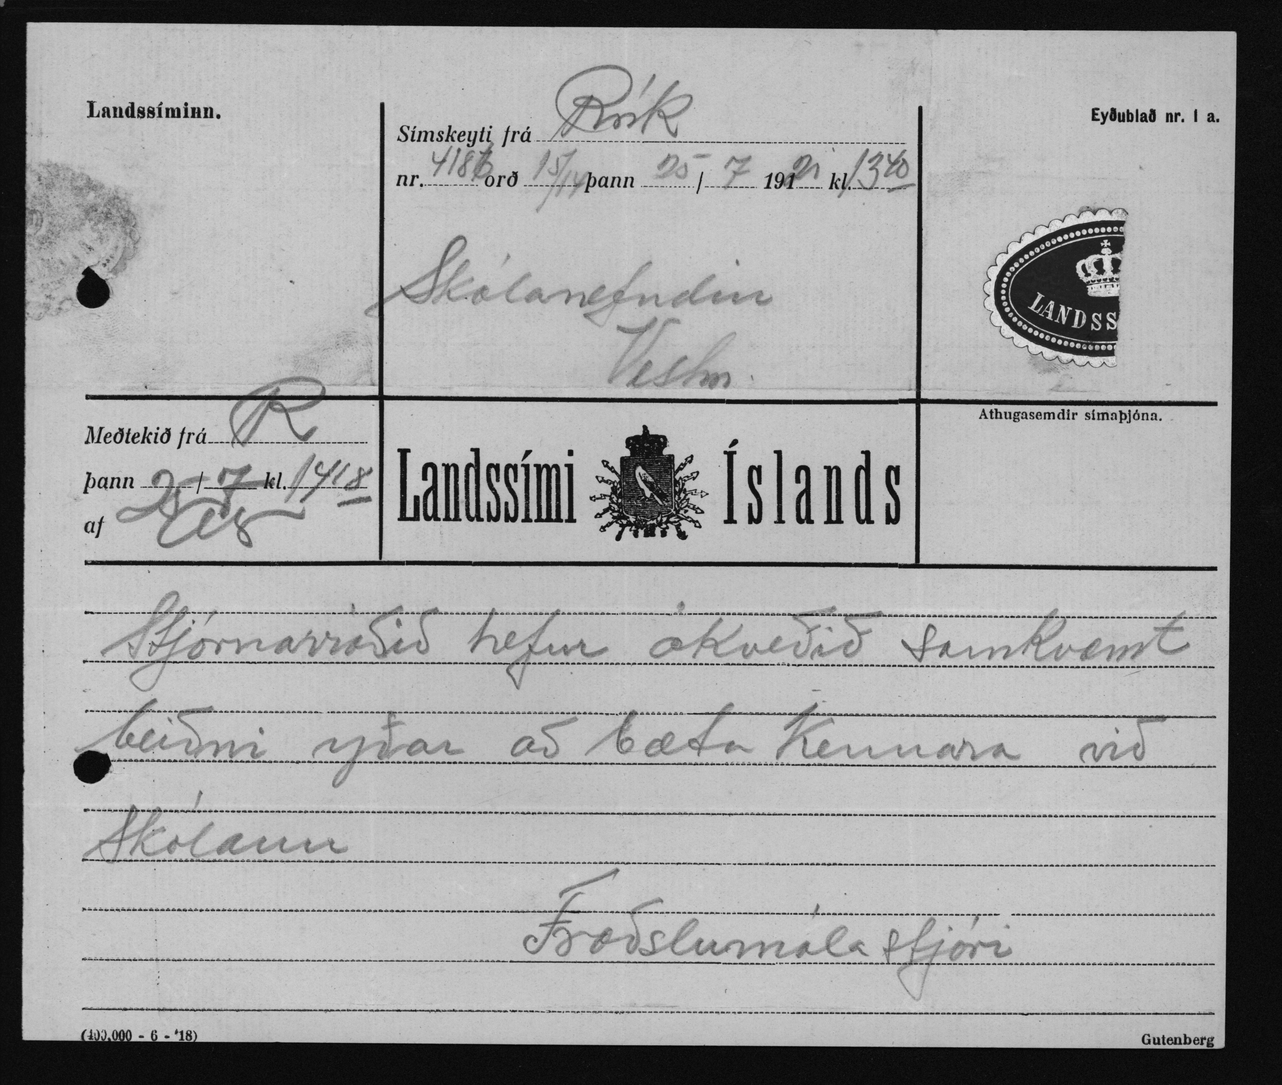 Landssíminn.
Eyðublað nr. 1 a.
Símskeyti frá Rvík
nr. 418 orð 15/14 þann 25 / 7 1921 kl. 1340
Skólanefndin
Vestm.
LANDSS
Meðtekið frá R
þann 25 / 7 kl. 1418
af
Landssími Íslands
Athugasemdir símaþjóna.
Stjórnarráðið hefur ákveðið samkvæmt
beiðni yðar að bæta kennara við
Skólann
Fræðslumála stjóri
(400,000 - 6 - '18)
Gutenberg